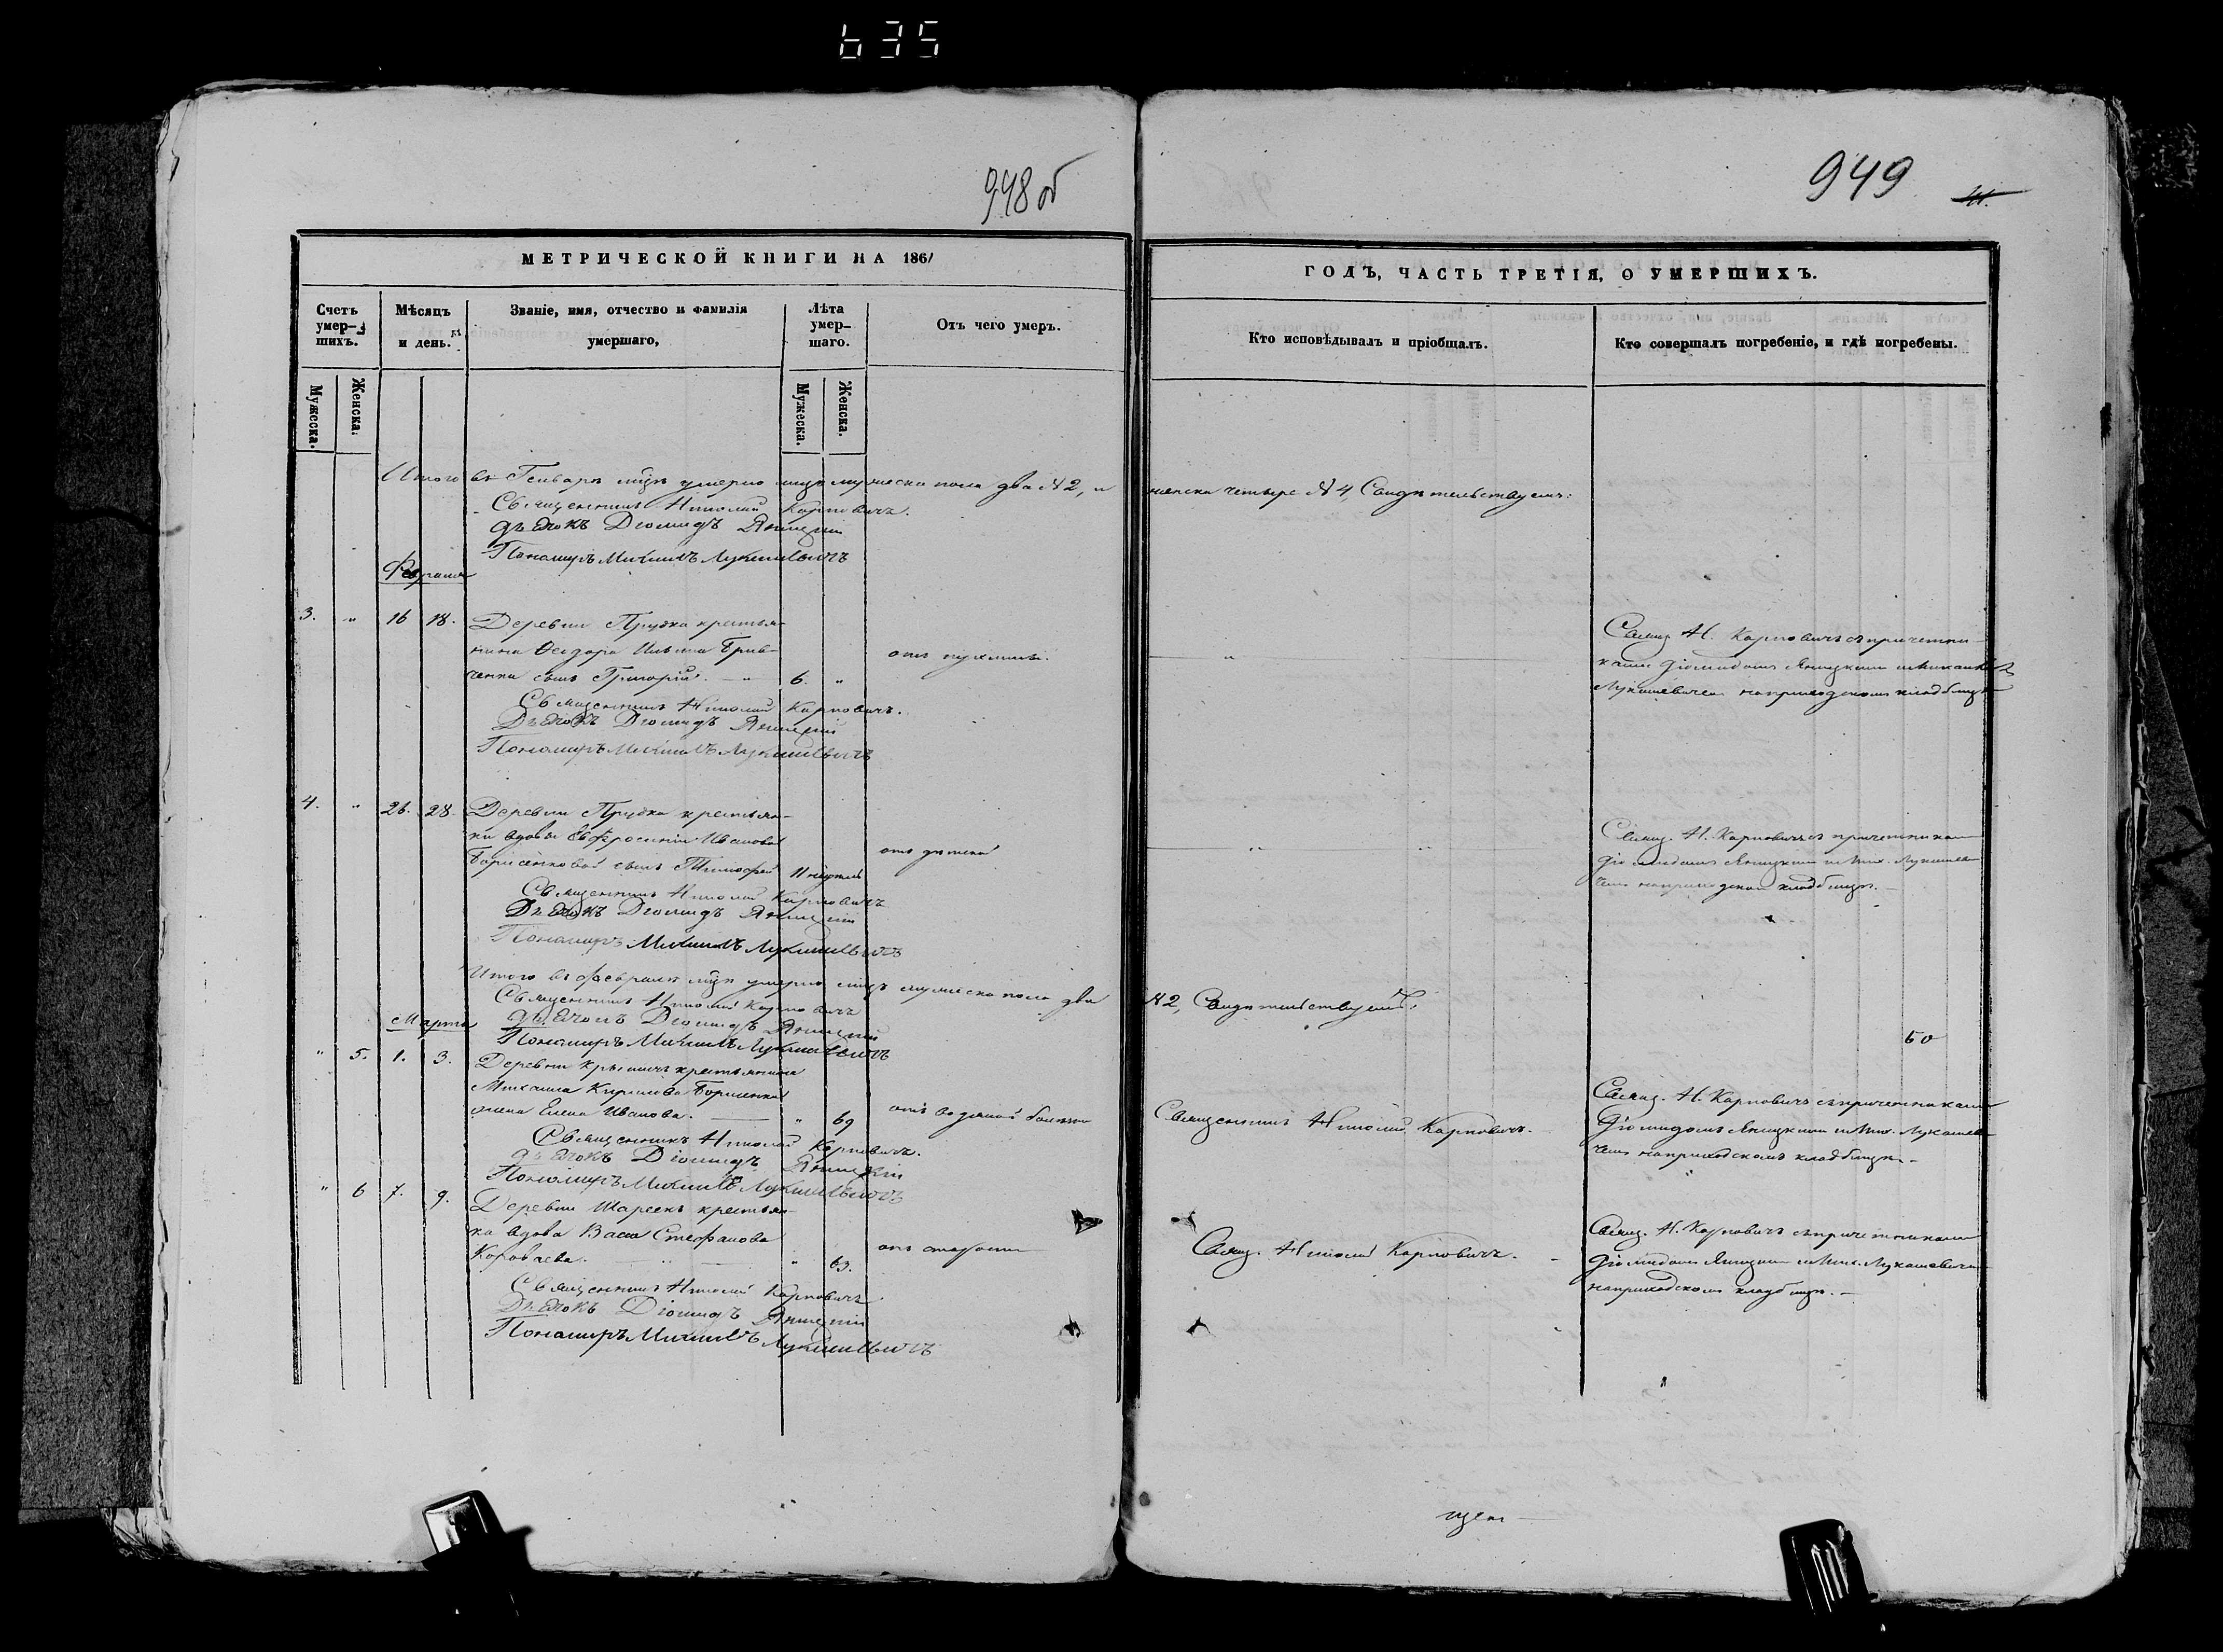 635
948 об
949
МЕТРИЧЕСКОЙ КНИГИ НА 1861
Счетъ умер-шихъ.
Мѣсяцъ и день.
Званіе, имя, отчество и фамилія умершаго,
Лѣта умер-шаго.
Отъ чего умеръ.
Мужеска.
Женска.
Мужеска.
Женска.
ГОДЪ, ЧАСТЬ ТРЕТІЯ, О УМЕРШИХЪ.
Кто исповѣдывалъ и пріобщалъ.
Кто совершалъ погребеніе, и гдѣ погребены.
Итого въ Генварѣ мцѣ умерло лицъ мужеска пола два № 2, и женска четыре № 4, Свидѣтельствуемъ:
Священникъ Николай Карповичъ.
Дьячокъ Діомидъ Яницкій
Пономарь Михаилъ Лукашевичъ
Февраля
3. " 16 18. Деревни Прудка крестья-
нина Ѳедора Ильина
сынъ Григорій. — " 6. "
Священникъ Николай Карповичъ.
Дьячокъ Діомидъ Яницкій
Пономарь Михаилъ Лукашевичъ
Свящ. Н. Карповичъ съ причетни-
ками Діомидомъ Яницкимъ и Михаиломъ
Лукашевичемъ на приходскомъ кладбищѣ
4. " 26. 28. Деревни Прудка крестьян-
ки вдовы Евфросиніи Ивановой
Борисенковой сынъ Тимофей
Священникъ Николай Карповичъ
Дьячокъ Діомидъ Яницкій
Пономарь Михаилъ Лукашевичъ
Свящ. Н. Карповичъ съ причетниками
Діомидомъ Яницкимъ и Мих. Лукашеви-
чемъ на приходскомъ кладбищѣ. —
Итого въ Февралѣ мцѣ умерло лицъ мужеска пола два № 2, Свидѣтельствуемъ:
Священникъ Николай Карповичъ
Дьячокъ Діомидъ Яницкій
Пономарь Михаилъ Лукашевичъ
Марта
" 5. 1. 3. Деревни крестьянина
Михаила Кирилова Борисенка
жена Елена Иванова. — " 69
отъ водяной болѣзни
Священникъ Николай Карповичъ.
Священникъ Николай Карповичъ.
Дьячокъ Діомидъ Яницкій
Пономарь Михаилъ Лукашевичъ
Свящ. Н. Карповичъ съ причетниками
Діомидомъ Яницкимъ и Мих. Лукашеви-
чемъ на приходскомъ кладбищѣ. —
" 6 7. 9. Деревни крестьян-
ка вдова Васа Стефанова
Короваева. — " 63.
отъ старости
Свящ. Николай Карповичъ.
Священникъ Николай Карповичъ
Дьячокъ Діомидъ Яницкій
Пономарь Михаилъ Лукашевичъ
Свящ. Н. Карповичъ съ причетниками
Діомидомъ Яницкимъ и Мих. Лукашевичемъ
на приходскомъ кладбищѣ. —